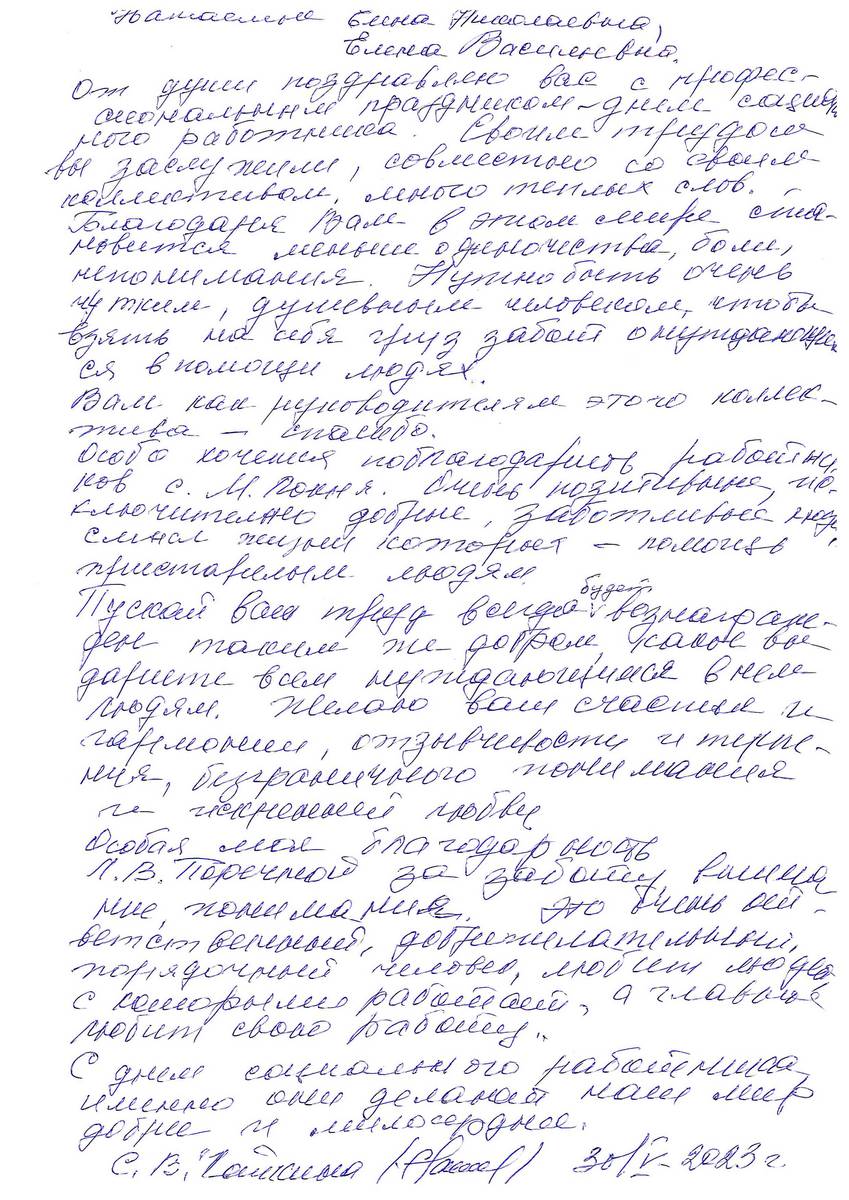 Елена Николаевна,
Елена Васильевна.
От души поздравляю вас с профес-
сиональным праздником – днем социаль
ного работника. Своим трудом
вы заслужили, совместно со своим
коллективом, много теплых слов.
Благодаря Вам в этом мире ста-
новится меньше одиночества, боли,
непонимания. Нужно быть очень
чутким, душевным человеком, чтобы
взять на себя груз забот о нуждающих
ся в помощи людях.
Вам как руководителям этого коллек-
тива – спасибо.
Особо хочется поблагодарить работни
ков с. М. Очень позитивные, ис-
ключительно добрые, заботливые люди,
смысл жизни которых – помощь
престарелым людям.
Пускай ваш труд всегда будет вознаграж-
ден таким же добром, какое вы
дарите всем нуждающимся в нем
людям. Желаю вам счастья и
гармонии, отзывчивости и терпе-
ния, безграничного понимания
и искренней любви
Особая моя благодарность
Л.В. Поречной за заботу, внима
ние, понимания. Это очень от-
ветственный, доброжелательный,
порядочный человек, любит людей
с которыми работает, а главное
любит свою работу..
С днем социального работника,
именно они делают наш мир
добрее и милосерднее.
С.В. 30/V-2023 г.